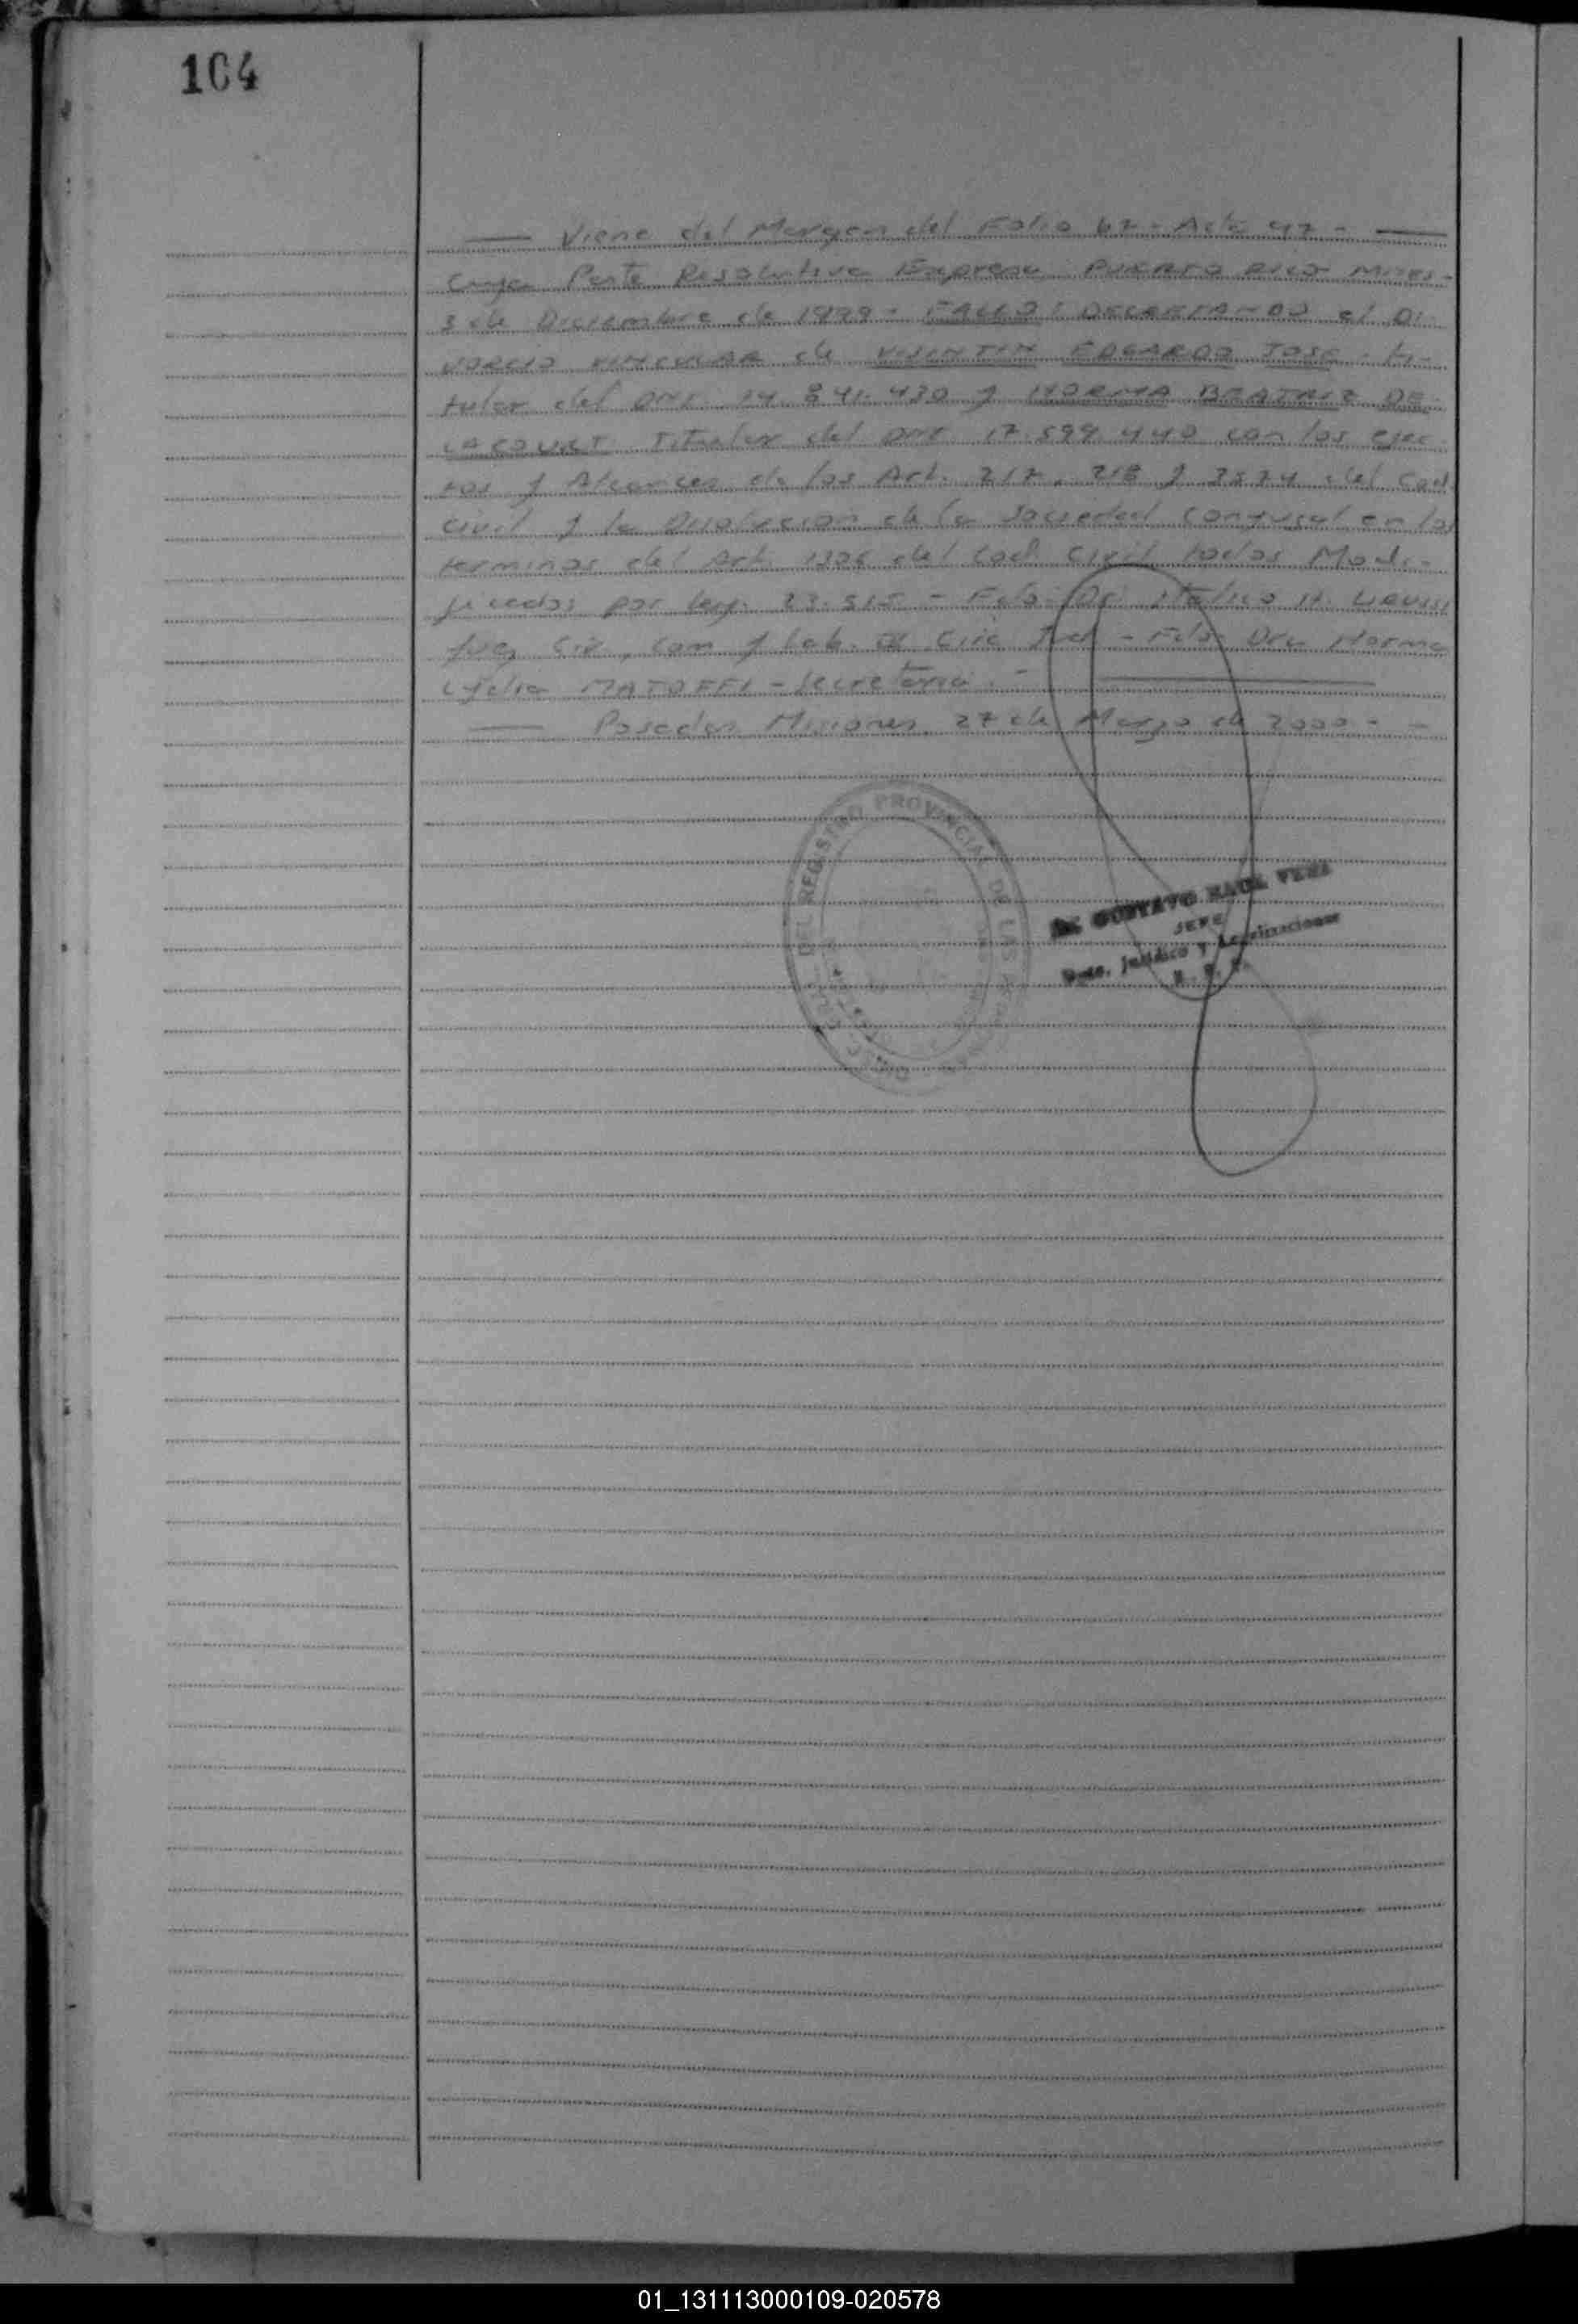 104
— Viene del Margen del Folio 67 - Acta 97 - —
Cuya Parte Resolutiva Expresa: PUERTO RICO Mnes -
3 de Diciembre de 1999 - FALLO: DECRETANDO el DI-
VORCIO VINCULAR de VISENTIN EDGARDO JOSE - ti-
tular del DNI. 14.841.430 y NORMA BEATRIZ DE-
LACOURT Titular del DNI. 17.599.440 con los efec-
tos y Alcances de los Art. 217, 218 y 3574 del Cod.
Civil y la Disolucion de la Sociedad Conyugal en los
terminos del Art. 1306 del Cod. Civil todos Modi-
ficados por ley. 23.515 - Fdo: Dr.
Juez Civ., Com y Lab. Circ Jud - Fdo: Dra Norma
Lydia MATOFFI - Secretaria. -
— Posadas Misiones, 27 de Marzo de 2000 - -
DEL REGISTRO PROVINCIAL DE LAS
GUSTAVO RAUL
JEFE
Dpto. Jurídico y Legalizaciones
01_131113000109-020578